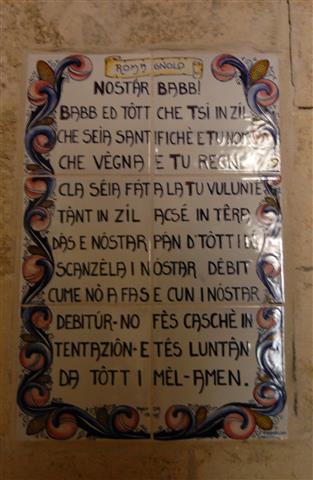 ROMAGNOLO
NOSTAR BABB!
BABB ED TÔTT CHE TSÌ IN ZIL
CHE SEIA SANTIFICHÈ E TU NOM
CHE VÈGNA E TU REGNE
CLA SÉIA FÁTA LA TU VULUNTÉ
TÀNT IN ZIL ACSÉ IN TÈRA
DAS E NÓSTAR PÀN D'TÔTT I DÈ
SCANZÈLA I NÓSTAR DÉBIT
CUME NÔ A FAS E CUN I NÓSTAR
DEBITÚR-NO FÈS CASCHÈ IN
TENTAZIÔN-E TÉS LUNTÂN
DA TÔTT I MÈL-AMEN.